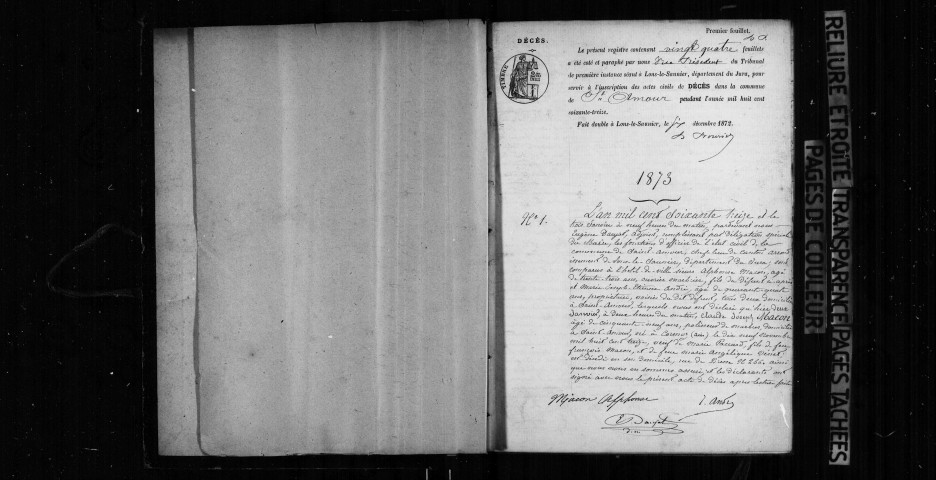 Premier feuillet.
DÉCÈS.
TIMBRE
Le présent registre contenant vingt quatre feuillets
a été coté et paraphé par nous Vice Président du Tribunal
de première instance séant à Lons-le-Saunier, département du Jura, pour
servir à l'inscription des actes civils de DÉCÈS dans la commune
de St Amour pendant l'année mil huit cent
soixante-treize.
Fait double à Lons-le-Saunier, le dix décembre 1872.
1873
No 1.
L'an mil cent soixante treize et le
trois Janvier à neuf heures du matin, pardevant nous
Eugène adjoint, remplissant par délégation spéciale
du Maire, les fonctions d'officier de l'état civil de la
commune de Saint-Amour, chef lieu de canton, arrond
issement de Lons-le-Saunier, département du Jura, sont
comparus à l'hôtel-de-ville sieurs Alphonse Macon, âgé
de trente trois ans, fils du défunt ci-après
et Marie Joseph Etienne André, âgé de quarante quatre
ans, propriétaire, voisin du dit défunt, tous deux domiciliés
à Saint-Amour, lesquels nous ont déclaré qu'hier deux
Janvier, à deux heures du matin, Claude Joseph Macon
âgé de cinquante-neuf ans, domicilié
à Saint-Amour, né à (ain) le dix neuf novembre
mil huit cent treize, veuf de Marie fils de feu
françois Macon, et de feue marie Angélique
est décédé en son domicile, rue de ainsi
que nous nous en sommes assuré, et les déclarants ont
signé avec nous le présent acte de décès après lecture faite
Macon Alphonse E. André
RELIURE ETROITE TRANSPARENCE PAGES TACHEES
PAGES DE COULEUR